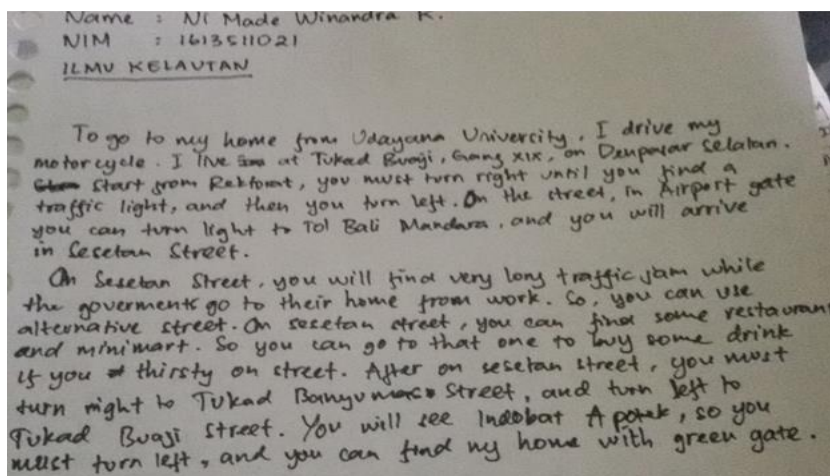 Name : Ni Made Winandra K.
NIM : 1613511021
ILMU KELAUTAN
To go to my home from Udayana University, I drive my
motorcycle. I live at Tukad Buaji, Gang XIX, on Denpasar Selatan.
Start from Rektorat, you must turn right until you find a
traffic light, and then you turn left. On the street, in Airport gate
you can turn light to Tol Bali Mandara, and you will arrive
in Sesetan Street.
On Sesetan Street, you will find very long traffic jam while
the goverments go to their home from work. So, you can use
alternative street. On sesetan street, you can find some restaurant
and minimart. So you can go to that one to buy some drink
if you thirsty on street. After on sesetan street, you must
turn right to Tukad Banyumas Street, and turn left to
Tukad Buaji Street. You will see Indobat Apotek, so you
must turn left, and you can find my home with green gate.